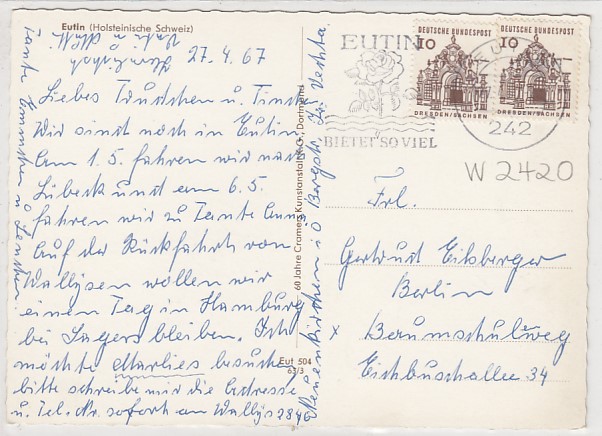 Eutin (Holsteinische Schweiz)
27.4.67
Liebes Trudchen u. Tinchen
Wir sind noch in Eutin
Am 1.5. fahren wir nach
Lübeck und am 6.5.
fahren wir zu Tante Anna
Auf der Rückfahrt von
Wallysen wollen wir
einen Tag in Hamburg
bei Lagers bleiben. Ich
möchte Marlies besuchen
bitte schreibe mir die Adresse
u. Tel. Nr. sofort an Wallys 2846
Neuenkirchen i. O Bergstr.
Vechta
Tante
60 Jahre Cramers Kunstanstalt KG., Dortmund
Eut 504
63/3
EUTIN
BIETET SO VIEL
242
DEUTSCHE BUNDESPOST
10
DRESDEN/SACHSEN
DEUTSCHE BUNDESPOST
10
DRESDEN/SACHSEN
W 2420
Frl.
Gertrud Eksberger
Berlin
x Baumschulweg
Eichbuschallee 34